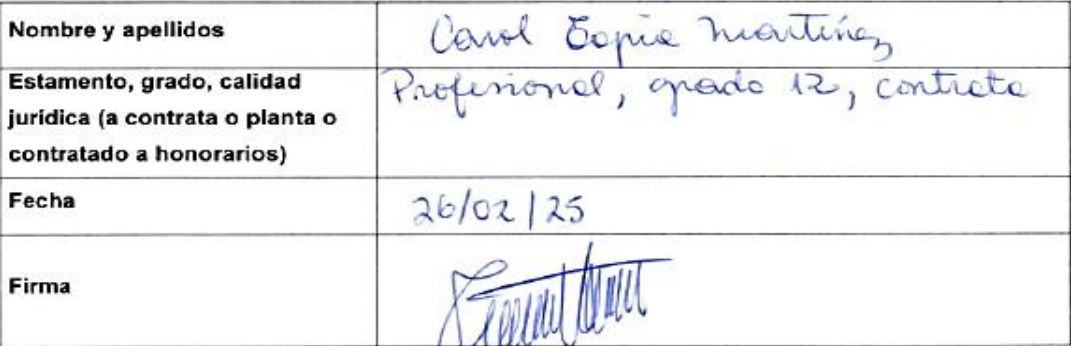 Nombre y apellidos
Carol Tapia Martínez
Estamento, grado, calidad
jurídica (a contrata o planta o
contratado a honorarios)
Profesional, grado 12, contrata
Fecha
26/02/25
Firma